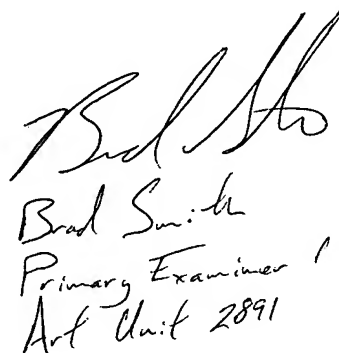 Brad Smith
Brad Smith
Primary Examiner
Art Unit 2891